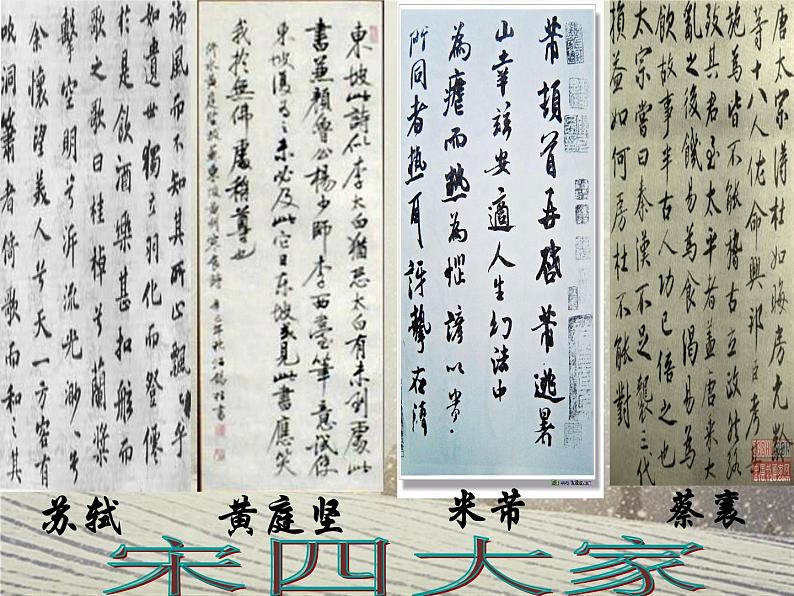 御風而不知其所止飄〻乎
如遺世獨立羽化而登僊
於是飲酒樂甚扣舷而
歌之歌曰桂棹兮蘭槳
擊空明兮泝流光渺〻兮
余懷望美人兮天一方客有
吹洞簫者倚歌而和其
東坡此詩似李太白猶恐太白有未到處此
書兼顏魯公楊少師李西臺筆意試使
東坡復為之未必及此它日東坡或見此書應笑
我於無佛處稱尊也
芾頓首再啓芾逃暑
山幸茲安適人生幻法中
為瘧而熱為惱諺以貴
所同者熱耳訝摯在清
唐太宗得杜如晦房元齡
等十八人佐命興邦
施為皆不能稽古立政然能
致其君至太平者蓋唐承大
亂之後饑易為食渴易為
飲故事半古人功已倍之也
太宗嘗曰秦漢不足襲三代
損益如何房杜不能對
苏轼
黄庭坚
米芾
蔡襄
宋四大家